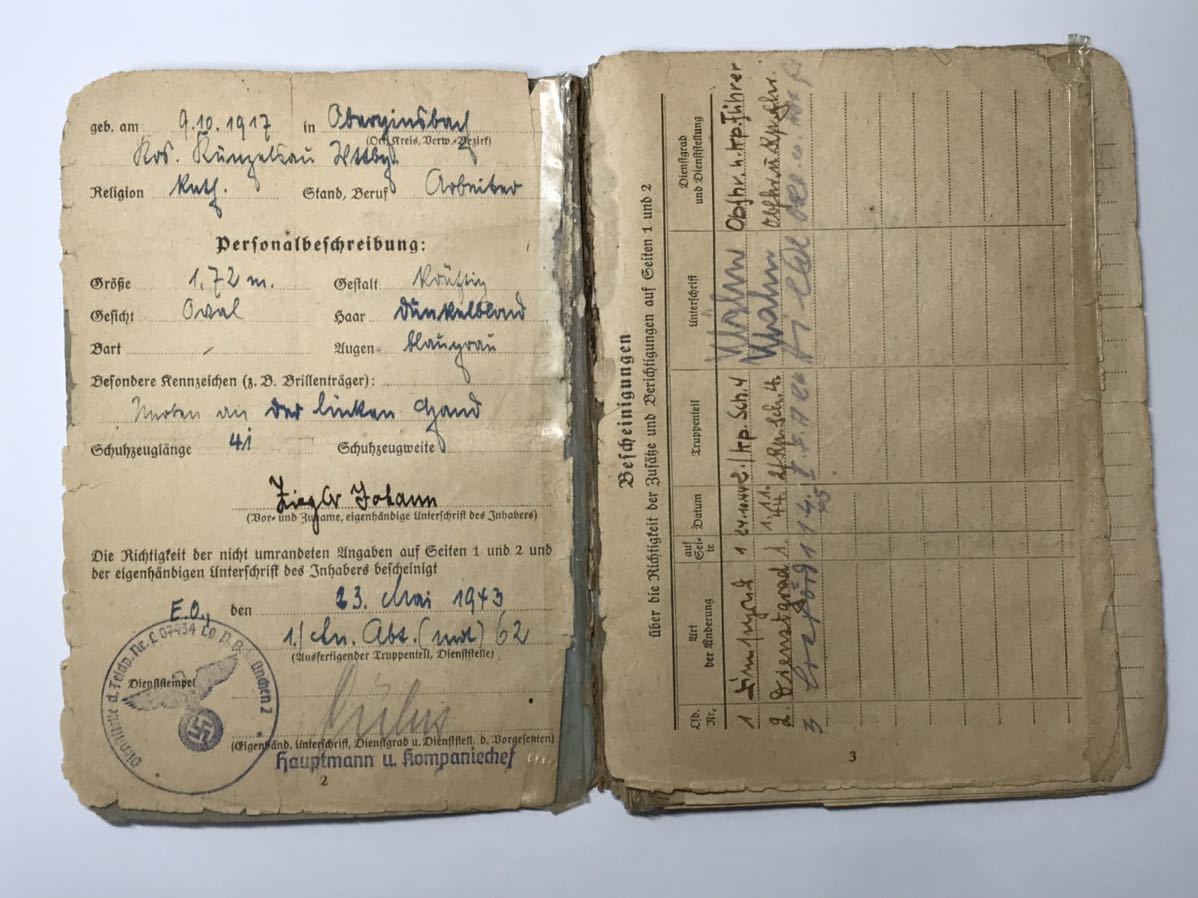 geb. am 9.10.1917 in Oberginsbach
(Ort, Kreis, Verw.-Bezirk)
Krs. Künzelsau Wttbg.
Religion kath. Stand, Beruf Arbeiter
Personalbeschreibung:
Größe 1,72 m. Gestalt kräftig
Gesicht Oval Haar dunkelblond
Bart - Augen blaugrau
Besondere Kennzeichen (z. B. Brillenträger):
Narben an der linken Hand
Schuhzeuglänge 41 Schuhzeugweite
Johann
(Vor- und Zuname, eigenhändige Unterschrift des Inhabers)
Die Richtigkeit der nicht umrandeten Angaben auf Seiten 1 und 2 und
der eigenhändigen Unterschrift des Inhabers bescheinigt
E.O., den 23. Mai 1943
1./ Ln. Abt. (mot) 62
(Ausfertigender Truppenteil, Dienststelle)
Dienststempel
München 2
(Eigenhänd. Unterschrift, Dienstgrad u. Dienststell. d. Vorgesetzten)
Hauptmann u. Kompaniechef
2
Bescheinigungen
über die Richtigkeit der Zusätze und Berichtigungen auf Seiten 1 und 2
Lfd. Nr. Art der Änderung auf Sei-te Datum Truppenteil Unterschrift Dienstgrad und Dienststellung
1 Dienstgrad 1 Kp. Führer
2. Dienstgrad 1. 1.11. 44.
3 1
3